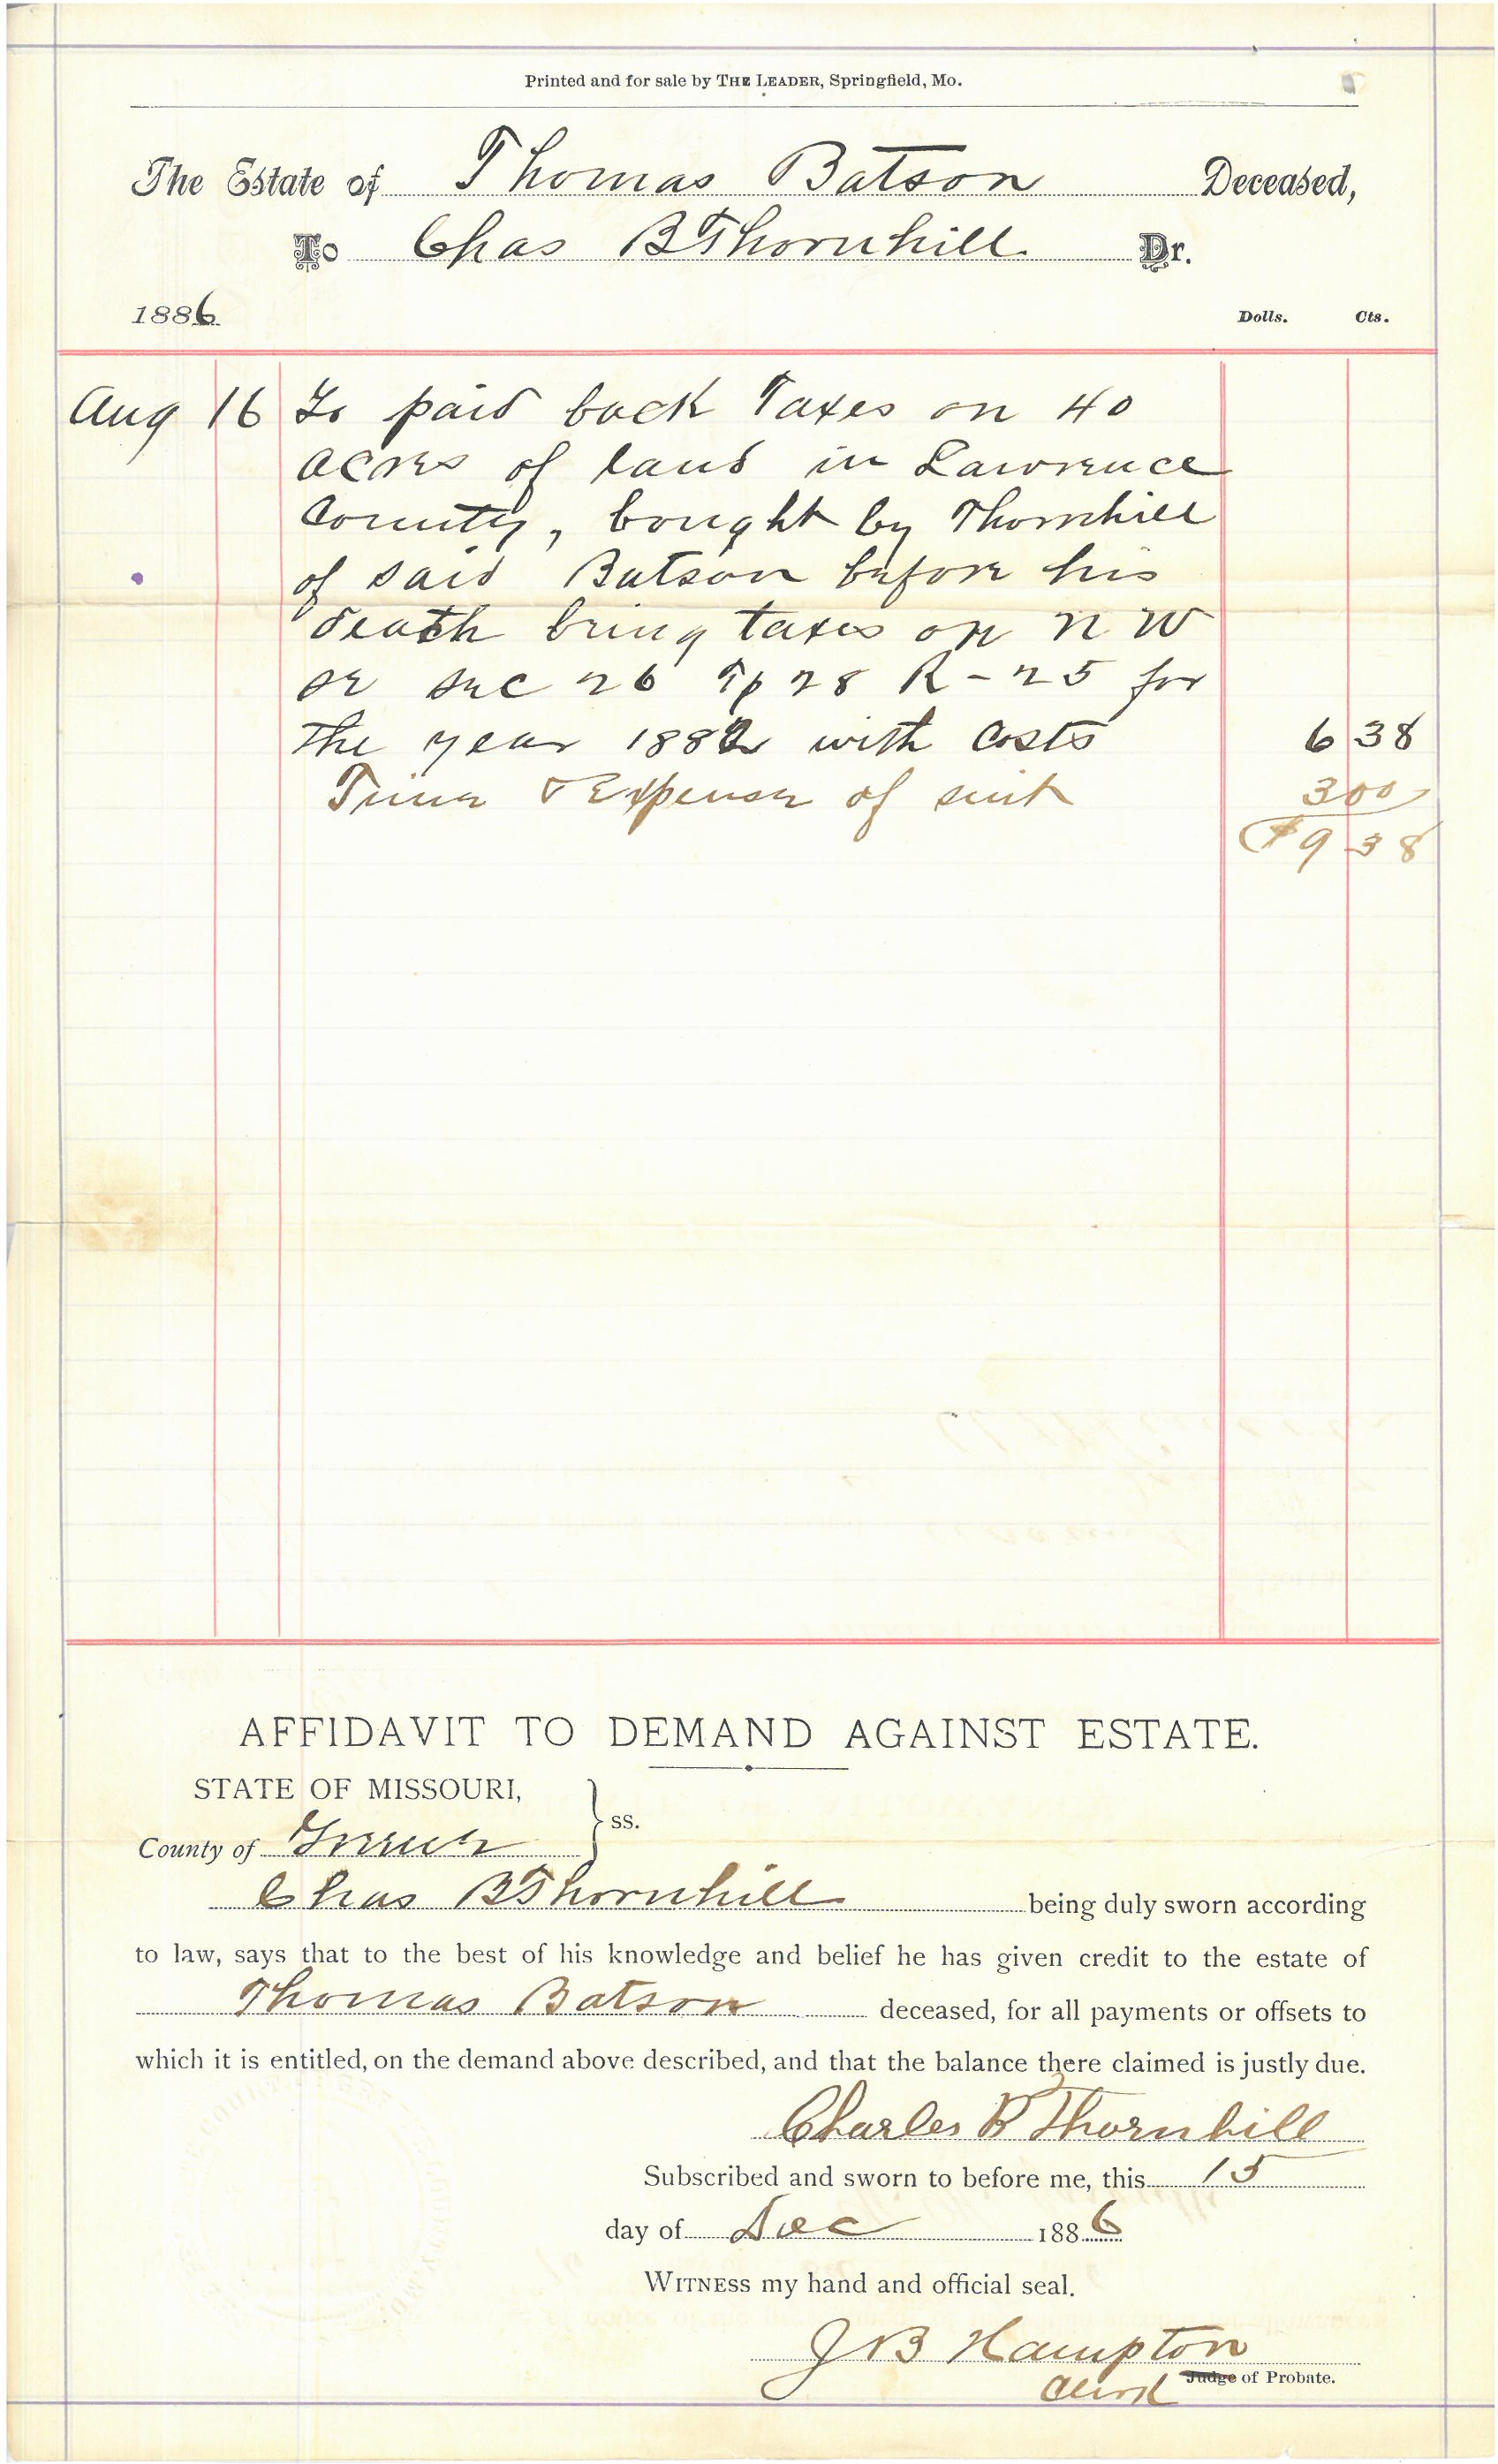 Printed and for sale by THE LEADER, Springfield, Mo.
The Estate of Thomas Batson Deceased,
To Chas B Thornhill Dr.
1886 Dolls. Cts.
Aug 16 To paid back Taxes on 40
acres of land in Lawrence
County, bought by Thornhill
of said Batson before his
death being taxes on N W
SE Sec 26 Tp 28 R-25 for
the year 1882 with Costs 6 38
Time & Expense of suit 3 00
$9 38
AFFIDAVIT TO DEMAND AGAINST ESTATE.
STATE OF MISSOURI,
County of Greene } ss.
Chas B Thornhill being duly sworn according
to law, says that to the best of his knowledge and belief he has given credit to the estate of
Thomas Batson deceased, for all payments or offsets to
which it is entitled, on the demand above described, and that the balance there claimed is justly due.
Charles B Thornhill
Subscribed and sworn to before me, this 15
day of Dec 1886
WITNESS my hand and official seal.
J B Hampton
Clerk Judge of Probate.